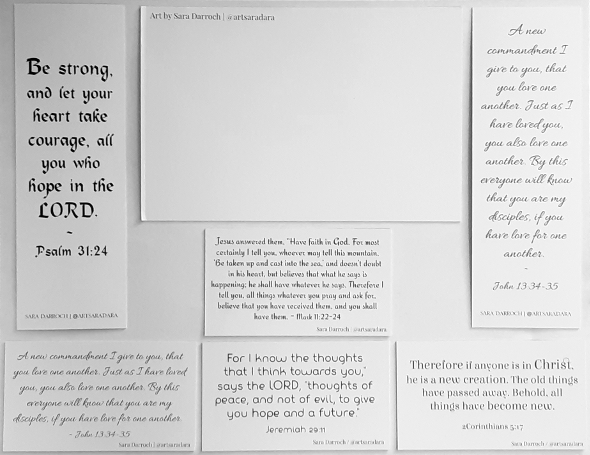 Be strong,
and let your
heart take
courage, all
you who
hope in the
LORD.
~
Psalm 31:24
SARA DARROCH | @ARTSARADARA
Art by Sara Darroch | @artsaradara
A new
commandment I
give to you, that
you love one
another. Just as I
have loved you,
you also love one
another. By this
everyone will know
that you are my
disciples, if you
have love for one
another.
~
John 13:34-35
SARA DARROCH | @ARTSARADARA
Jesus answered them, "Have faith in God. For most
certainly I tell you, whoever may tell this mountain,
'Be taken up and cast into the sea,' and doesn't doubt
in his heart, but believes that what he says is
happening; he shall have whatever he says. Therefore I
tell you, all things whatever you pray and ask for,
believe that you have received them, and you shall
have them. ~ Mark 11:22-24
Sara Darroch | @artsaradara
A new commandment I give to you, that
you love one another. Just as I have loved
you, you also love one another. By this
everyone will know that you are my
disciples, if you have love for one another.
~ John 13:34-35
Sara Darroch | @artsaradara
For I know the thoughts
that I think towards you,'
says the LORD, 'thoughts of
peace, and not of evil, to give
you hope and a future.'
Jeremiah 29:11
Sara Darroch | @artsaradara
Therefore if anyone is in Christ,
he is a new creation. The old things
have passed away. Behold, all
things have become new.
2Corinthians 5:17
Sara Darroch | @artsaradara